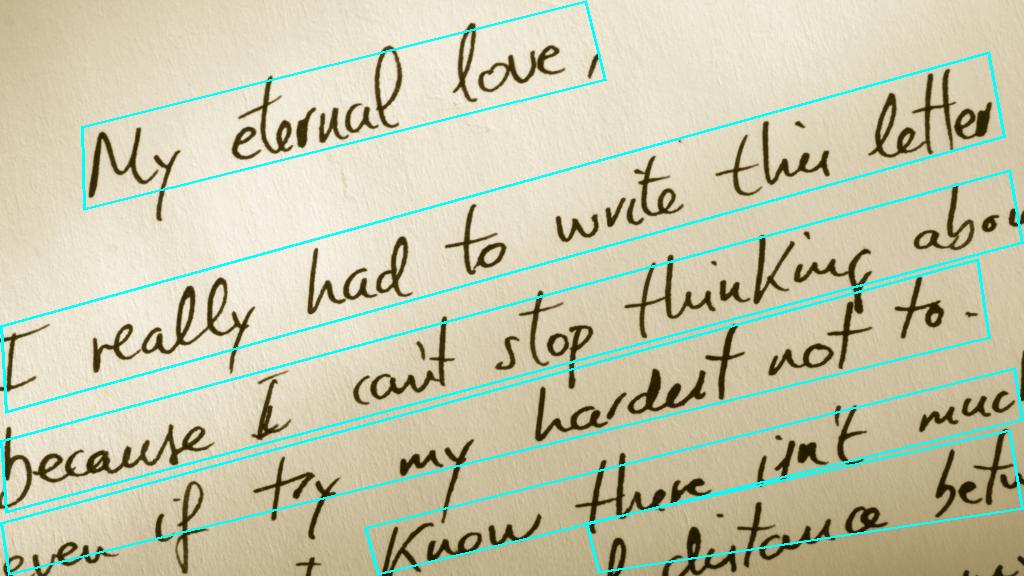 My eternal love,
I really had to write this letter
because I can't stop thinking abou
even if try my hardest not to.
Know there isn't much
distance betw